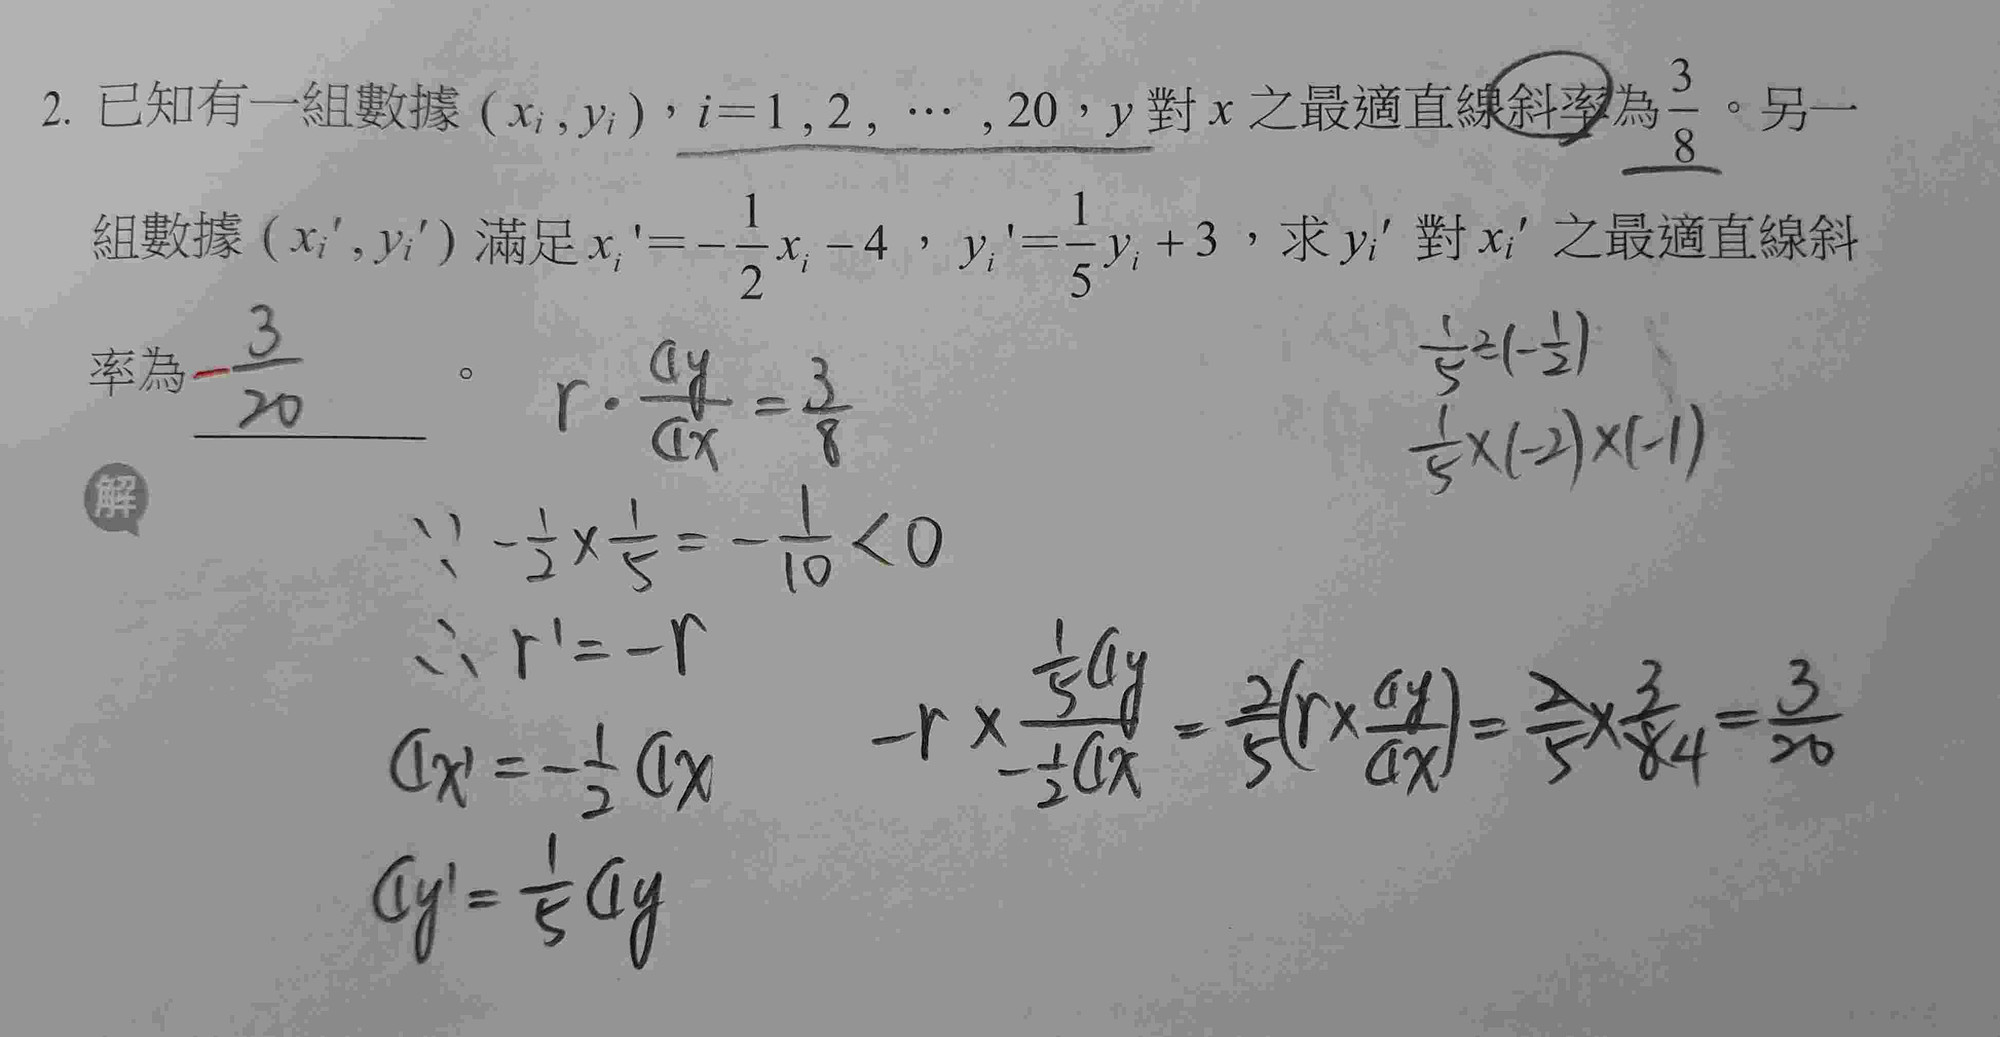 2. 已知有一組數據 ( xᵢ , yᵢ )，i＝1 , 2 , ⋯ , 20，y 對 x 之最適直線斜率為 3/8 。另一
組數據 ( xᵢ′ , yᵢ′ ) 滿足 xᵢ′＝－1/2 xᵢ－4，yᵢ′＝1/5 yᵢ＋3，求 yᵢ′ 對 xᵢ′ 之最適直線斜
率為 -3/20 。
r · σy/σx = 3/8
1/5 ÷ (-1/2)
1/5 × (-2) × (-1)
解
∵ -1/2 × 1/5 = -1/10 < 0
∴ r' = -r
σx' = -1/2 σx
-r × (1/5 σy)/(-1/2 σx) = 2/5 (r × σy/σx) = 2/5 × 3/8 4 = 3/20
σy' = 1/5 σy